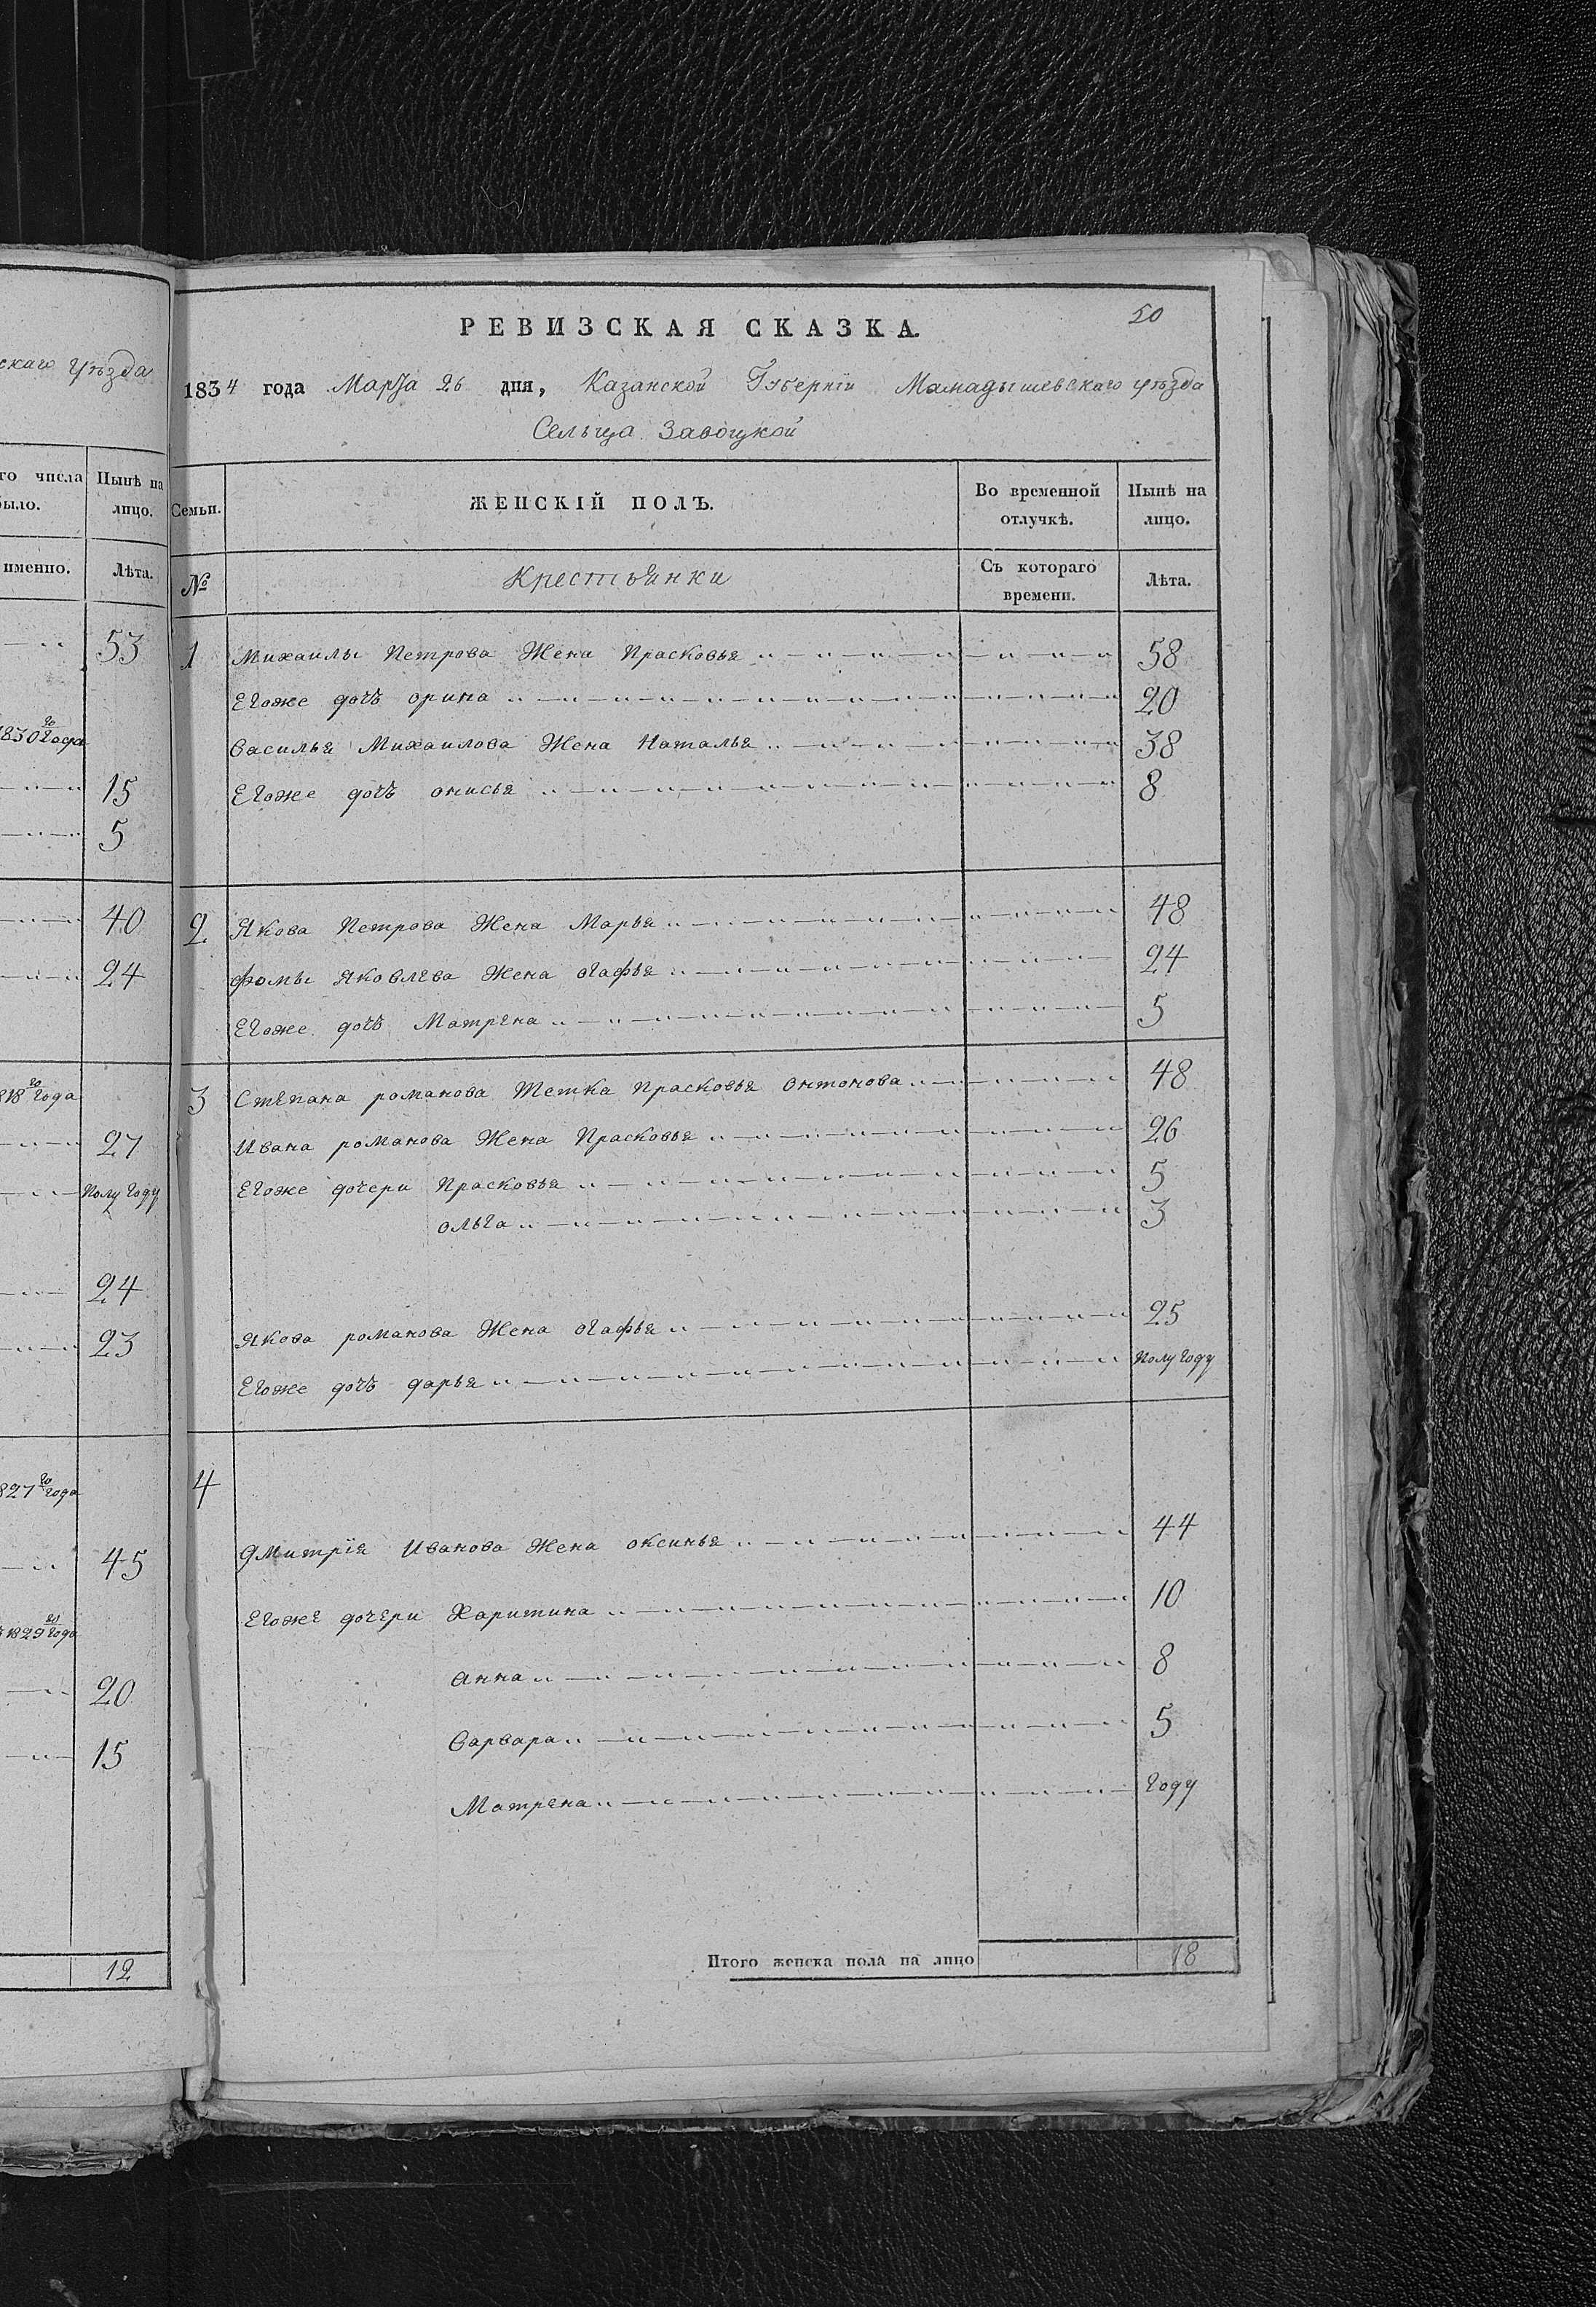 скаго уѣзда
го числа
было.
Нынѣ на
лицо.
именно.
Лѣта.
53
1830го года
15
5
40
24
1818го года
27
Полу году
24
23
1827го года
45
1829го года
20
15
12
50
РЕВИЗСКАЯ СКАЗКА.
1834 года Марта 26 дня, Казанской Губернїи Мамадышевскаго уѣзда
Сельца Завоцкой
Семьи.
ЖЕНСКІЙ ПОЛЪ.
Во временной
отлучкѣ.
Нынѣ на
лицо.
№
Крестьянки
Съ котораго
времени.
Лѣта.
1 Михаилы Петрова Жена Прасковья 58
Егоже дочь орина 20
Василья Михаилова Жена Наталья 38
Егоже дочь онисья 8
2 Якова Петрова Жена Марья 48
фомы Яковлева Жена огафья 24
Егоже дочь Матрена 5
3 Степана романова Тетка Прасковья онтонова 48
Ивана романова Жена Прасковья 26
Егоже дочери Прасковья 5
ольга 3
Якова романова Жена огафья 25
Егоже дочь дарья Полу году
4
дмитрїя Иванова Жена оксинья 44
Егоже дочери Харитина 10
анна 8
варвара 5
Матрена году
Итого женска пола на лицо 18